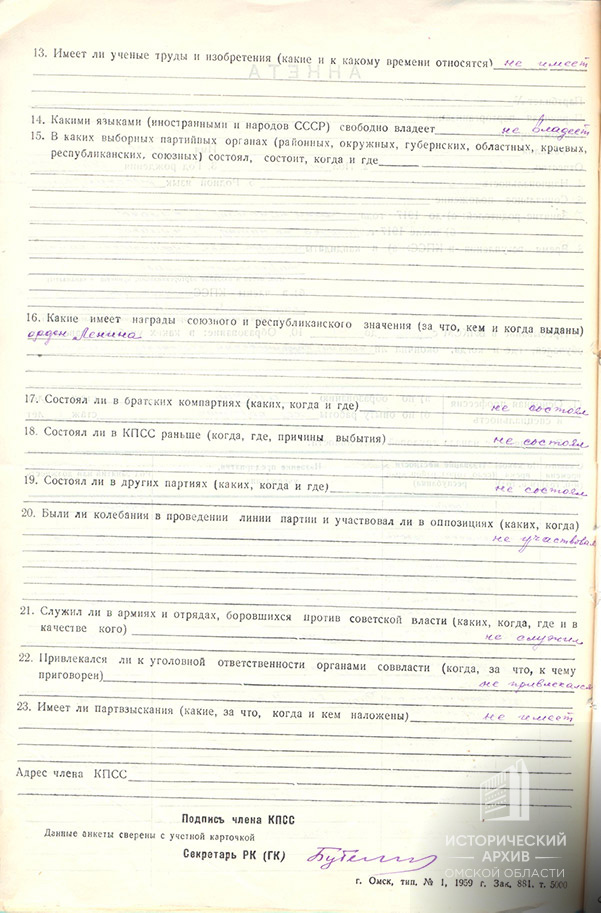 13. Имеет ли ученые труды и изобретения (какие и к какому времени относятся) не имеет
14. Какими языками (иностранными и народов СССР) свободно владеет не владеет
15. В каких выборных партийных органах (районных, окружных, губернских, областных, краевых,
республиканских, союзных) состоял, состоит, когда и где
16. Какие имеет награды союзного и республиканского значения (за что, кем и когда выданы)
орден Ленина
17. Состоял ли в братских компартиях (каких, когда и где) не состоял
18. Состоял ли в КПСС раньше (когда, где, причины выбытия) не состоял
19. Состоял ли в других партиях (каких, когда и где) не состоял
20. Были ли колебания в проведении линии партии и участвовал ли в оппозициях (каких, когда)
не участвовал
21. Служил ли в армиях и отрядах, боровшихся против советской власти (каких, когда, где и в
качестве кого) не служил
22. Привлекался ли к уголовной ответственности органами соввласти (когда, за что, к чему
приговорен) не привлекался
23. Имеет ли партвзыскания (какие, за что, когда и кем наложены) не имеет
Адрес члена КПСС
Подпись члена КПСС
Данные анкеты сверены с учетной карточкой
Секретарь РК (ГК)
г. Омск, тип. № 1, 1959 г. Зак. 881, т. 5000
ИСТОРИЧЕСКИЙ
АРХИВ
ОМСКОЙ ОБЛАСТИ